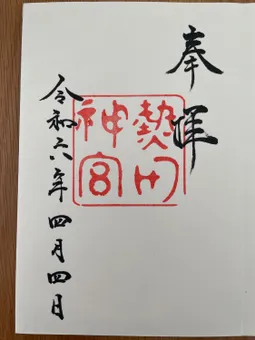 奉拝
熱田
神宮
令和六年四月四日